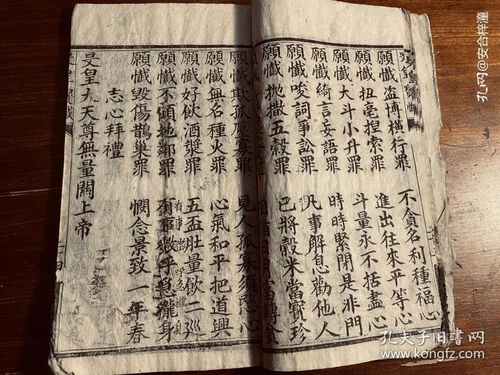 願懺盜博橫行罪 不貪名利種福心
願懺扭毫捏索罪 進出往來平等心
願懺大斗小升罪 斗量永不括盡心
願懺綺言妄語罪 時時緊閉是非門
願懺唆詞爭訟罪 凡事解息勸他人
願懺地撒五穀罪 已將穀米當寶珍
願懺欺孤壓寡罪 見人孤寡須愍心
願懺無名種火罪 心氣和平把道興
願懺好飲酒漿罪 五盃肚量飲一巡
願懺不顧地鄰罪
願懺毀傷鵲巢罪 憫念景致一年春
志心拜禮
旻皇大天尊無量闢上帝
孔网@安合梓潼
孔夫子旧书网
www.kongfz.com